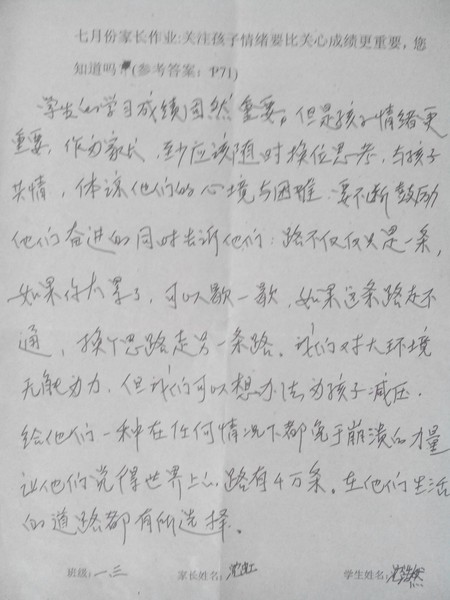 七月份家长作业:关注孩子情绪要比关心成绩更重要，您
知道吗?(参考答案：P71)
学生的学习成绩固然重要，但是孩子情绪更
重要，作为家长，至少应该随时换位思考，与孩子
共情，体谅他们的心境与困难，要不断鼓励
他们奋进的同时告诉他们：路不仅仅只是一条，
如果你太累了，可以歇一歇，如果这条路走不
通，换个思路走另一条路。我们对大环境
无能为力，但我们可以想办法为孩子减压.
给他们一种在任何情况下都免于崩溃的力量
让他们觉得世界上的路有4万条。在他们生活
的道路都有所选择。
班级：一三 家长姓名: 学生姓名: